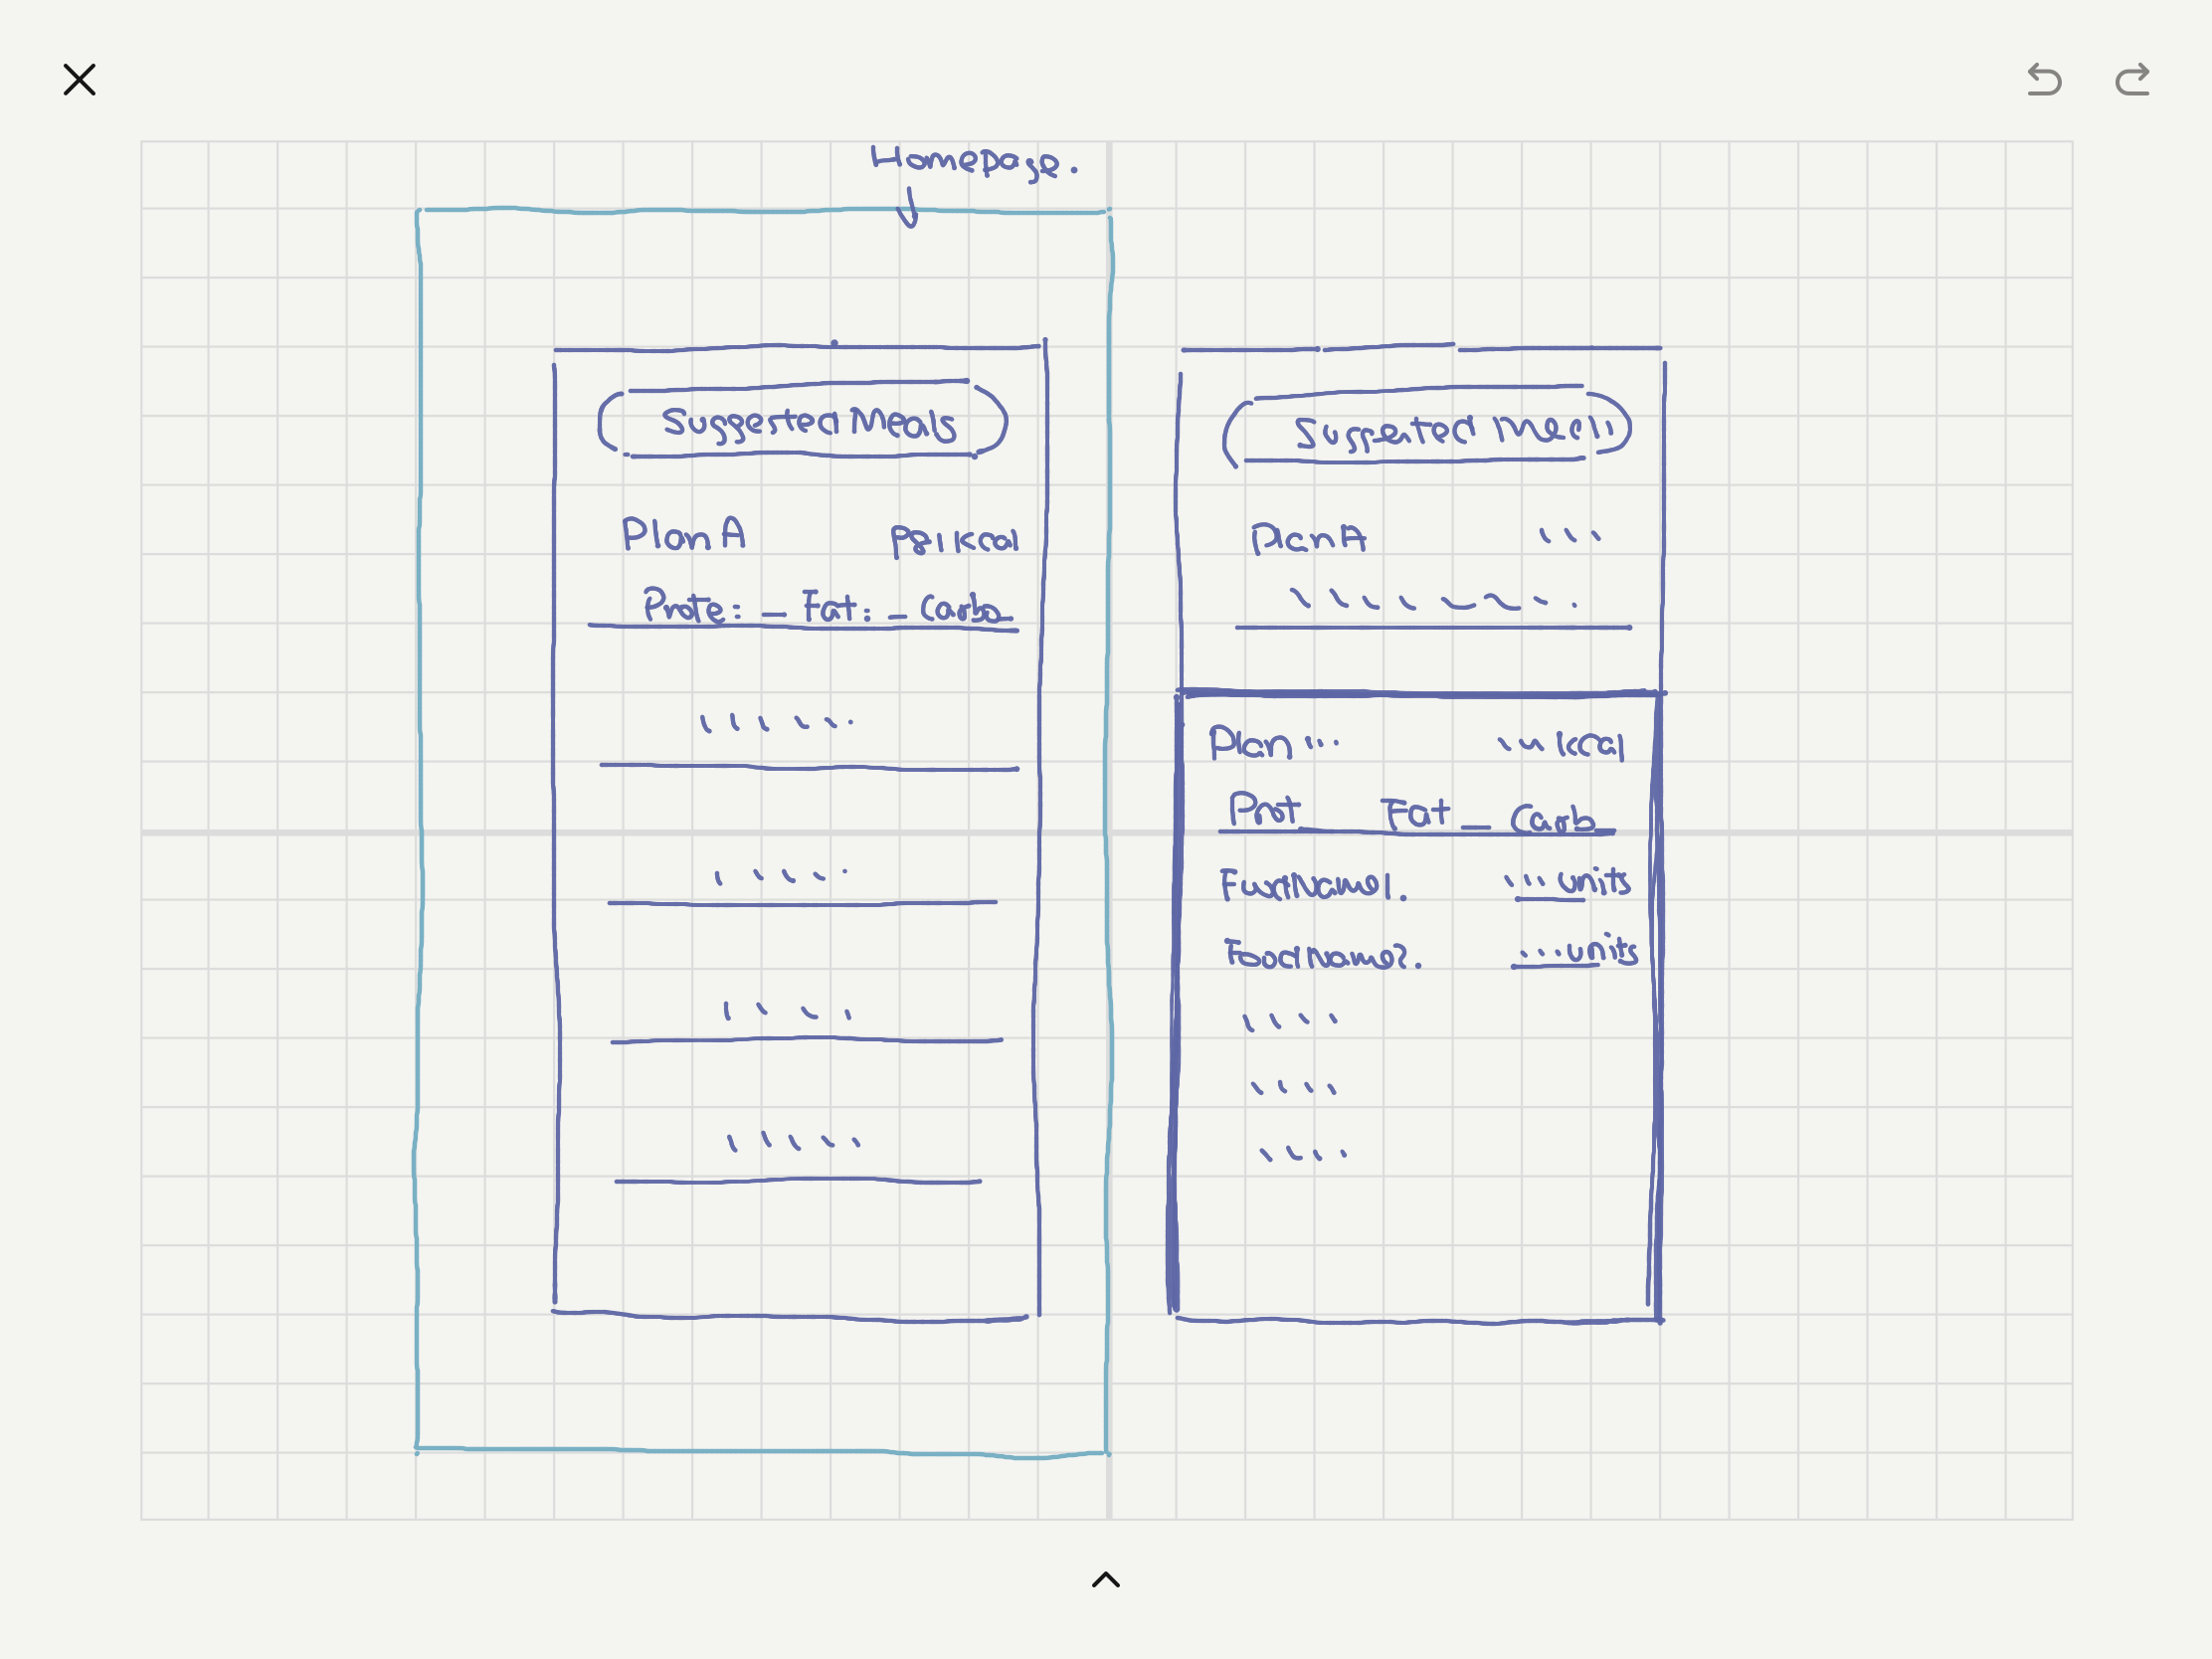 Homepage.
Suggested Meals
Plan A
kcal
Prote: _ Fat: _ Carb _
Suggested meals
Plan A ...
Plan ... ... kcal
Prot _ Fat _ Carb _
FoodName1. ... units
FoodName2. ... units